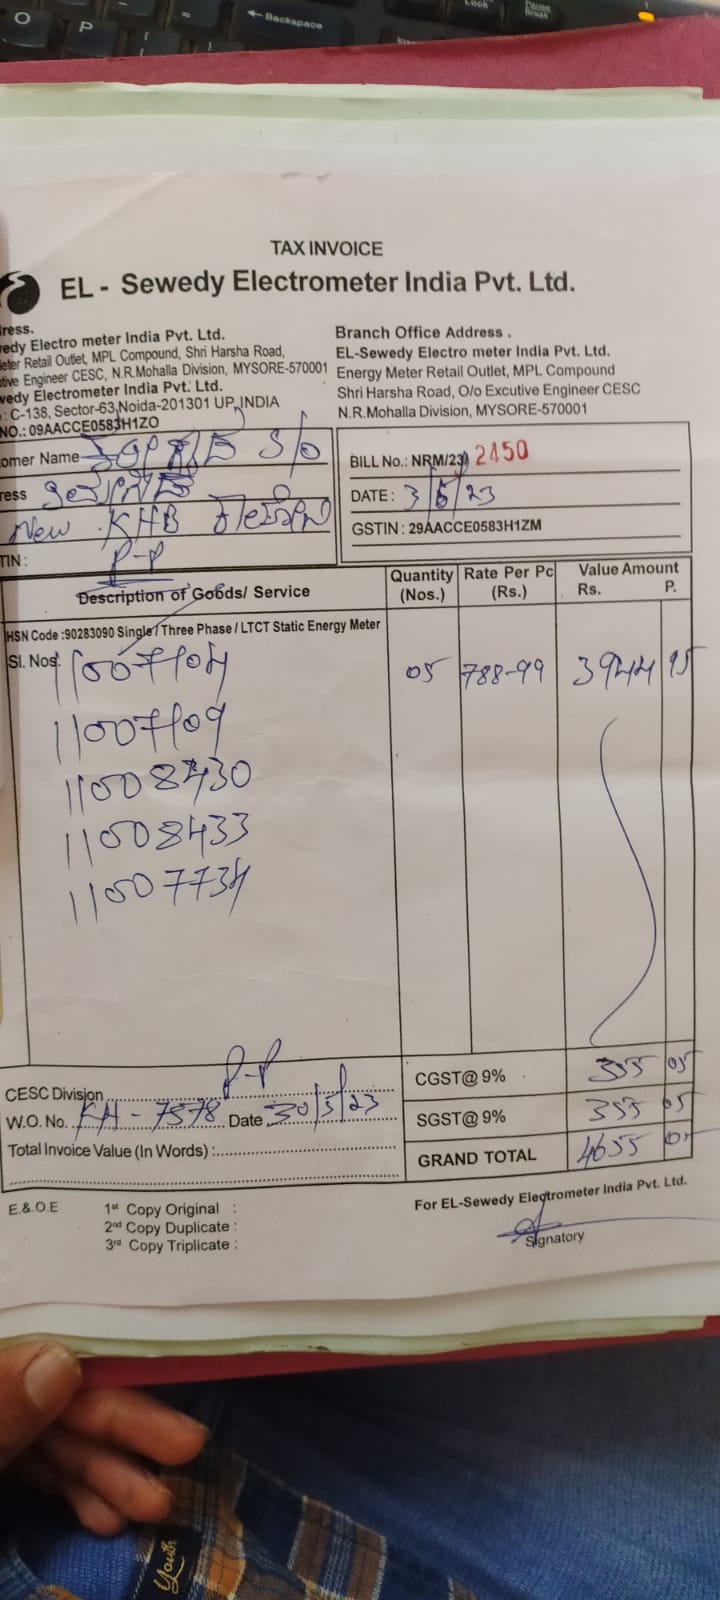 O
P
Backspace
Lock
Pause
Break
TAX INVOICE
EL - Sewedy Electrometer India Pvt. Ltd.
ress.
edy Electro meter India Pvt. Ltd.
eter Retail Outlet, MPL Compound, Shri Harsha Road,
tive Engineer CESC, N.R.Mohalla Division, MYSORE-570001
wedy Electrometer India Pvt. Ltd.
: C-138, Sector-63,Noida-201301 UP, INDIA
NO.: 09AACCE0583H1ZO
Branch Office Address .
EL-Sewedy Electro meter India Pvt. Ltd.
Energy Meter Retail Outlet, MPL Compound
Shri Harsha Road, O/o Excutive Engineer CESC
N.R.Mohalla Division, MYSORE-570001
omer Name S/o
ress
New KHB
TIN :
P-P
BILL No.: NRM/23/ 2450
DATE : 3/5/23
GSTIN : 29AACCE0583H1ZM
Description of Goods/ Service
Quantity (Nos.)
Rate Per Pc (Rs.)
Value Amount
Rs. P.
HSN Code :90283090 Single / Three Phase / LTCT Static Energy Meter
Sl. Nos. 11007704 05 788-99 3944 95
11007709
11008430
11008433
11007734
P-P
CESC Division
W.O. No. KH - 7578 Date 30/5/23
Total Invoice Value (In Words) :
CGST@ 9% 355 05
SGST@ 9% 355 05
GRAND TOTAL 4655 05
E.& O.E
1st Copy Original :
2nd Copy Duplicate :
3rd Copy Triplicate :
For EL-Sewedy Electrometer India Pvt. Ltd.
Signatory
Youth